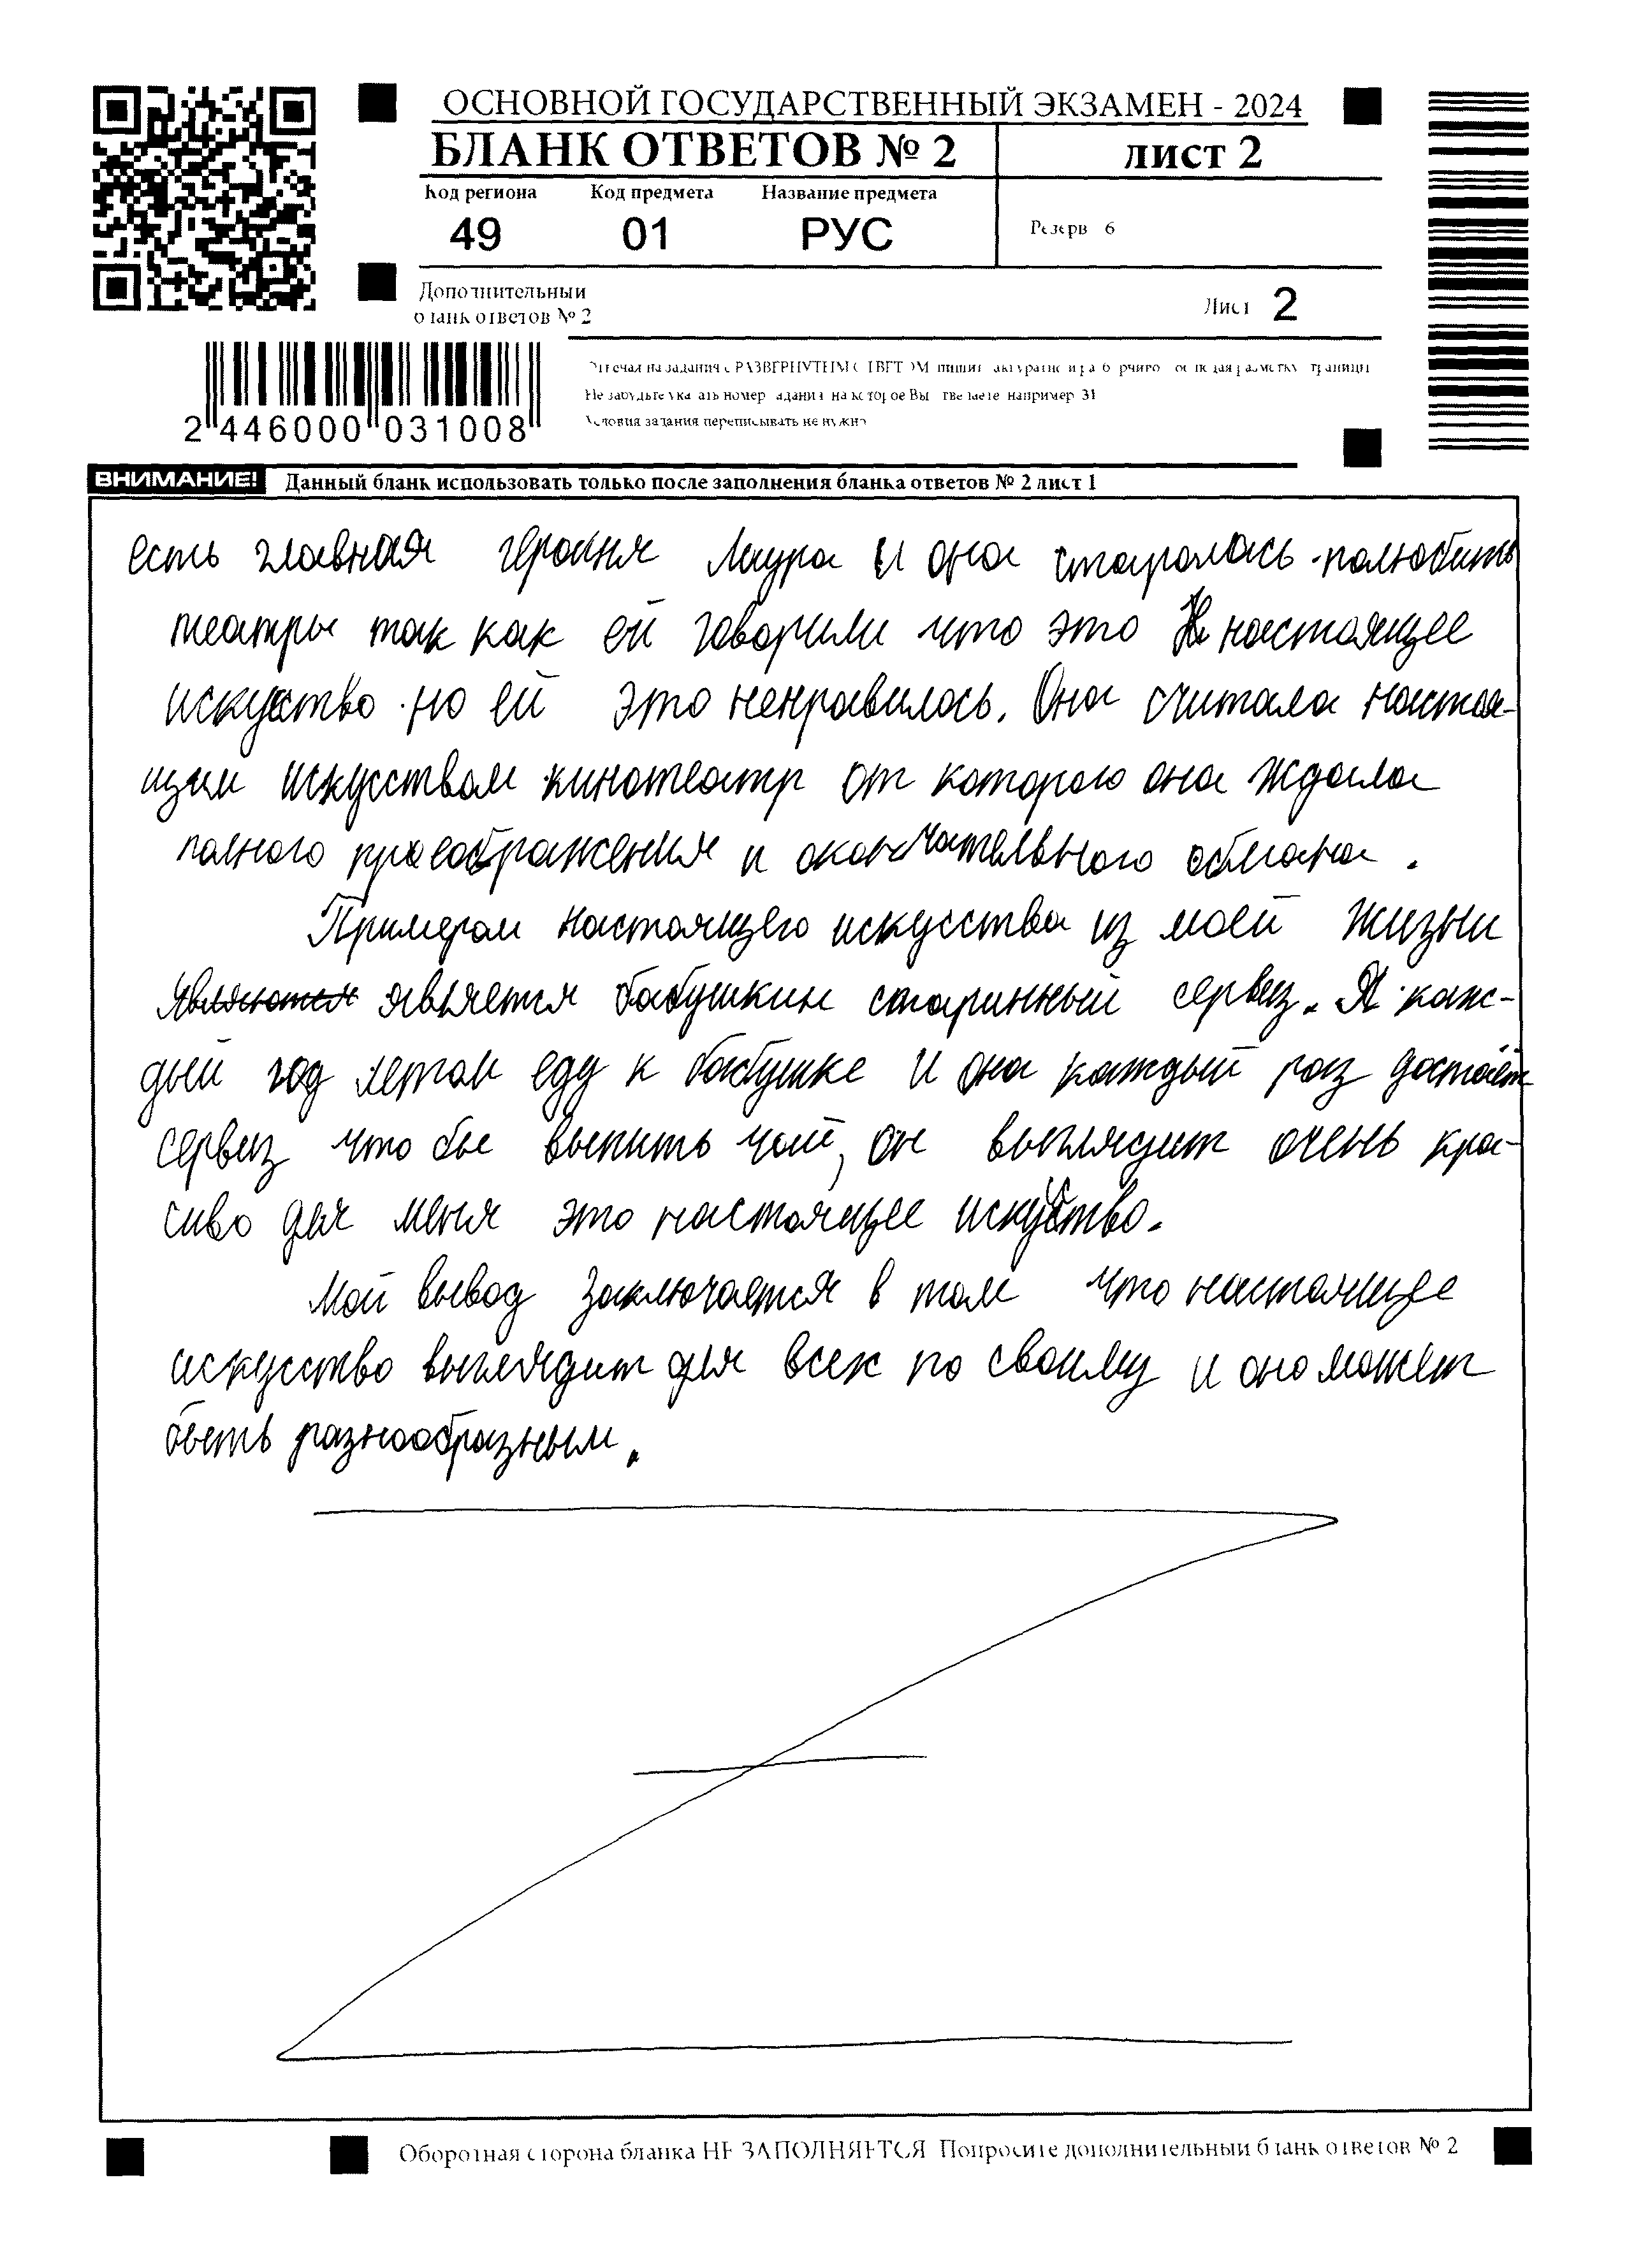 ОСНОВНОЙ ГОСУДАРСТВЕННЫЙ ЭКЗАМЕН - 2024
БЛАНК ОТВЕТОВ № 2
ЛИСТ 2
Код региона Код предмета Название предмета
49 01 РУС
Резерв 6
Дополнительный
бланк ответов № 2
Лист 2
Отвечая на задания с РАЗВЕРНУТЫМ ОТВЕТОМ пишите аккуратно и разборчиво соблюдая разметку страницы
Не забудьте указать номер задания на которое Вы отвечаете например 31
Условия задания переписывать не нужно
2 446000 031008
ВНИМАНИЕ! Данный бланк использовать только после заполнения бланка ответов № 2 лист 1
есть главная героиня Лаура и она старалась полюбить
театры так как ей говорили что это настоящее
искуство но ей это ненравилось. Она считала настоя-
щим искусством кинотеатр от которого она ждала
полного преображения и окончательного обмана.
Примером настоящего искусства из моей жизни
являются является бабушкин старинный сервиз. Я каж-
дый год летом еду к бабушке и она каждый раз достаёт
сервиз что бы выпить чай, он выглядит очень кра-
сиво для меня это настоящее искуство.
Мой вывод заключается в том что настоящее
искусство выглядит для всех по своиму и оно может
быть разнообразным.
Оборотная сторона бланка НЕ ЗАПОЛНЯЕТСЯ Попросите дополнительный бланк ответов № 2